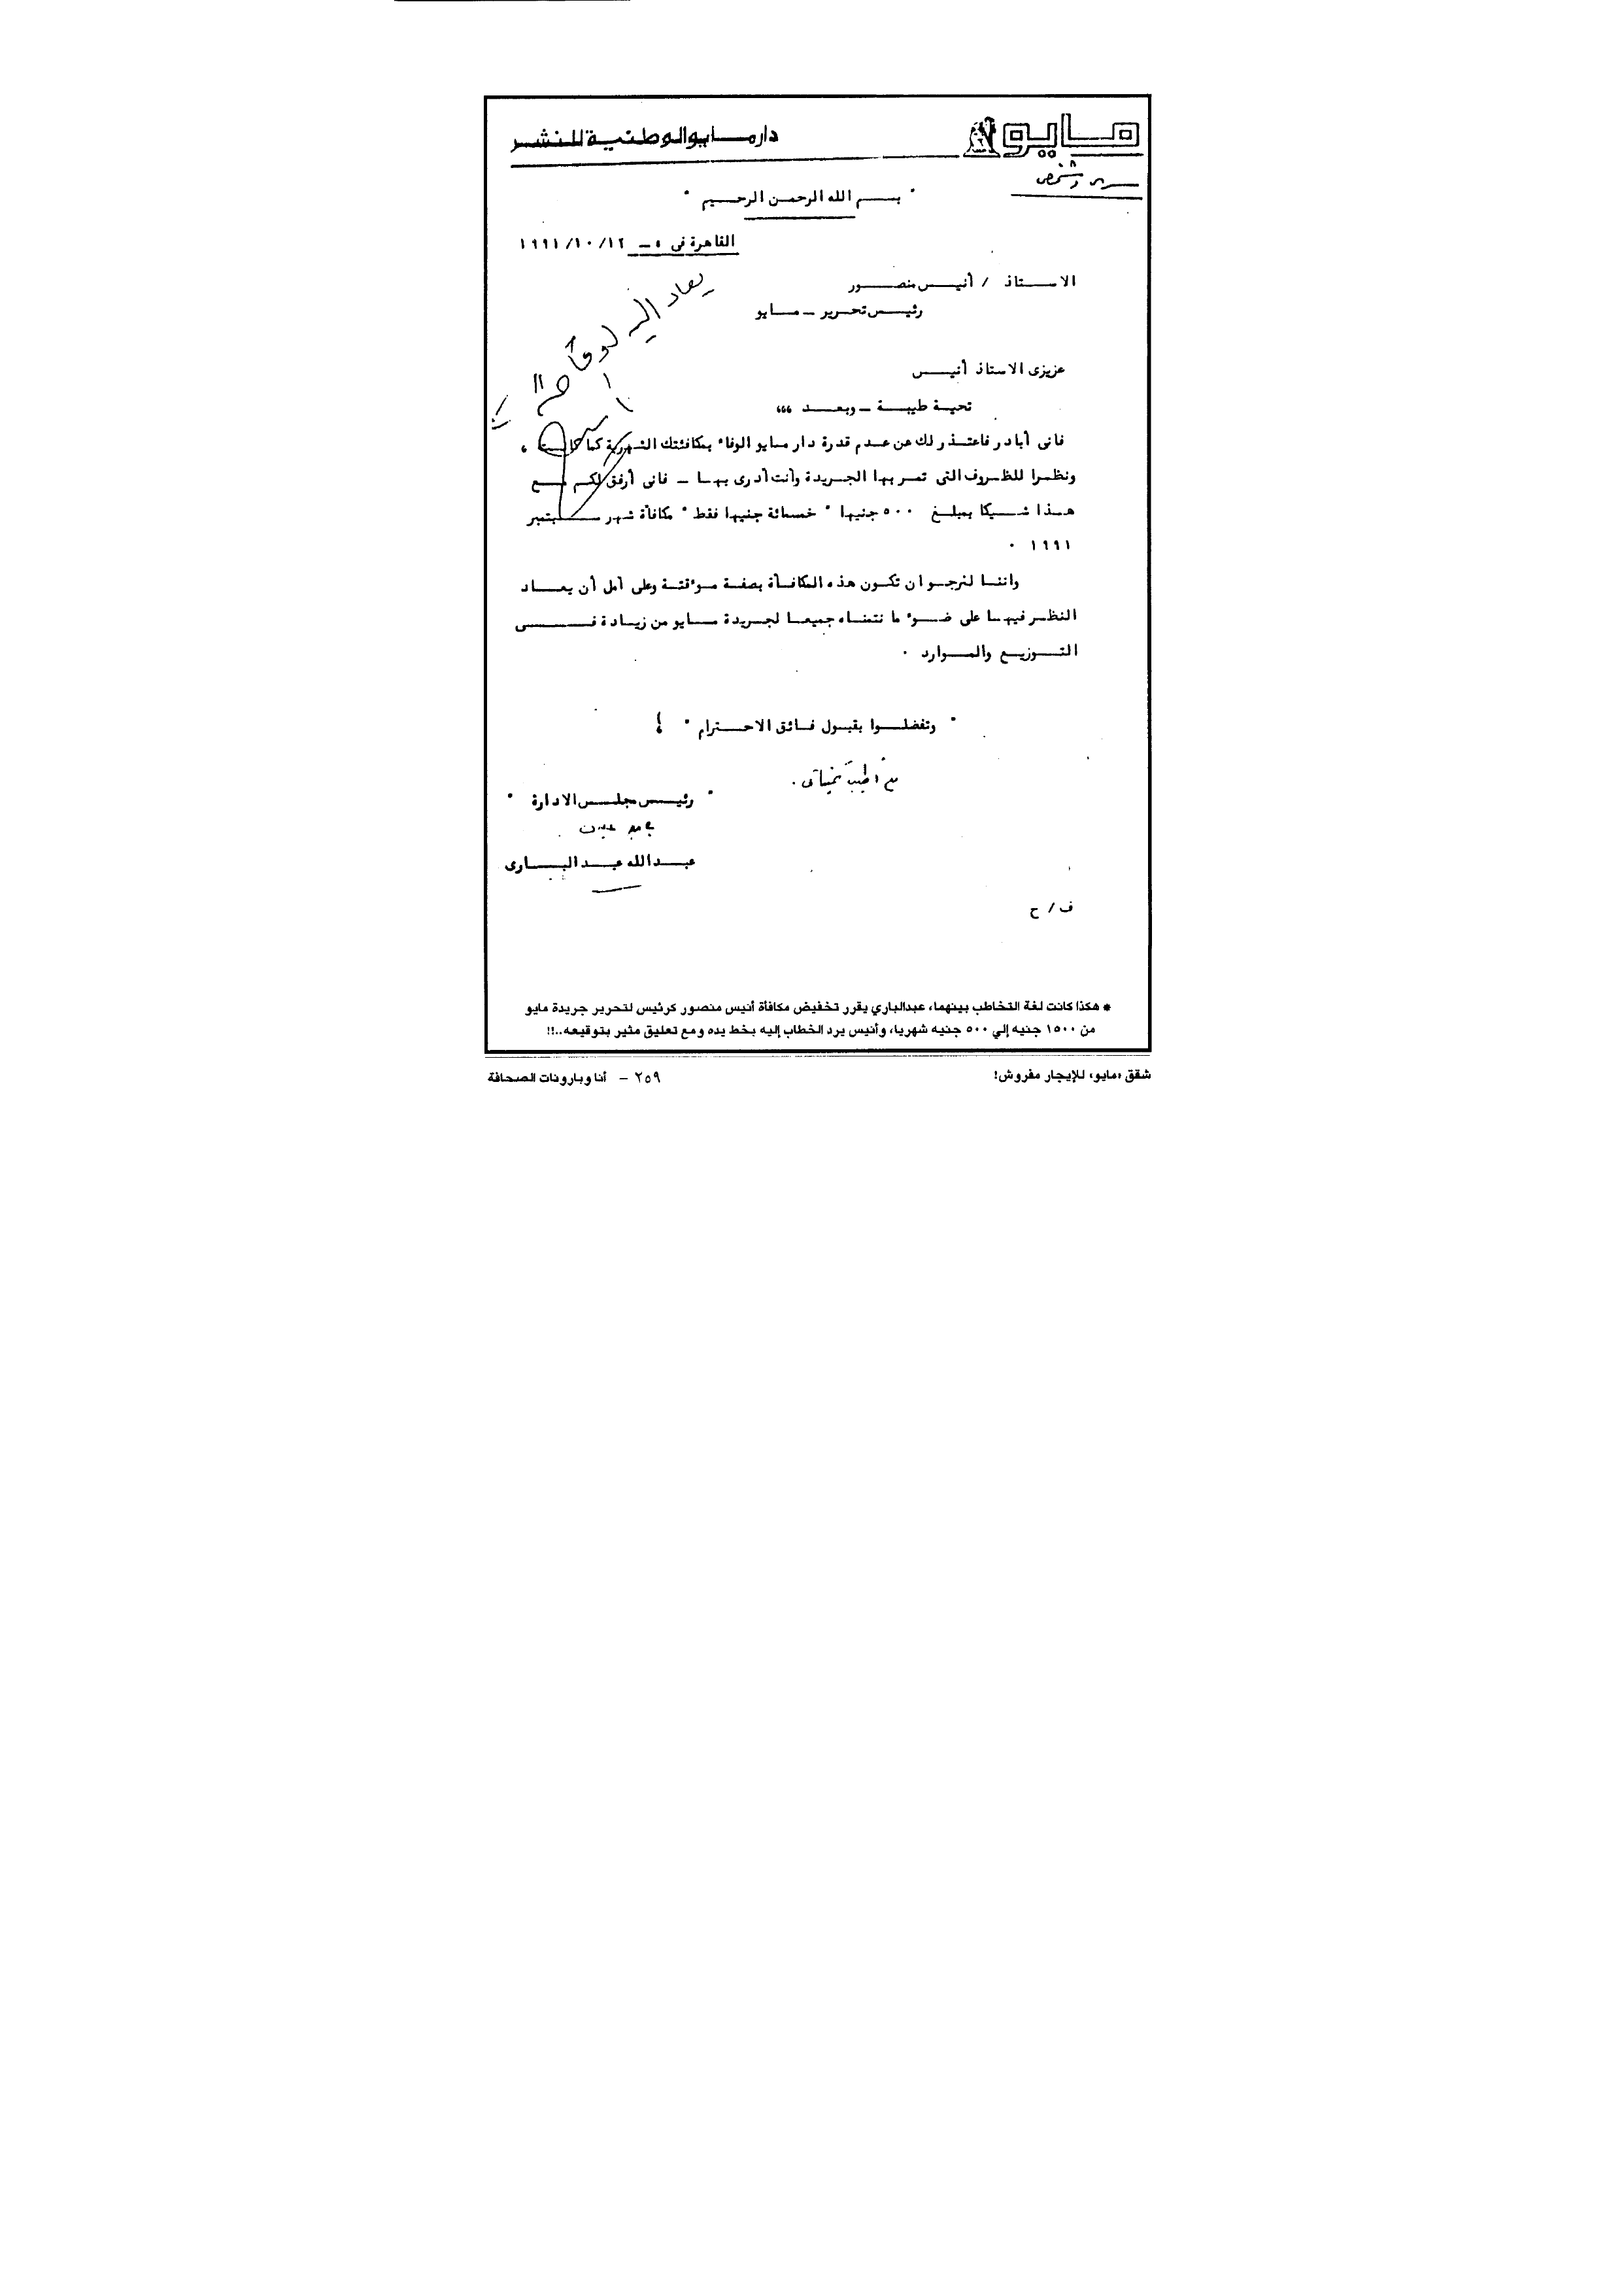 مايو
دار مايو الوطنية للنشر
سرى وشخصى
" بسم الله الرحمن الرحيم "
القاهرة فى ١٩٩١/١٠/١٢
الاستاذ / أنيس منصور
رئيس تحرير - مايو
يعاد إليه
عزيزى الاستاذ أنيس
تحية طيبة - وبعد ،،،
فانى أبادر فاعتذر لك عن عدم قدرة دار مايو الوفاء بمكافئتك الشهرية كما كانت ،
ونظرا للظروف التى تمر بها الجريدة وأنت أدرى بها - فانى أرفق لكم مع
هذا شيكا بمبلغ ٥٠٠ جنيها " خمسمائة جنيها فقط " مكافأة شهر سبتمبر
١٩٩١ .
واننا لنرجو ان تكون هذه المكافأة بصفة موءقتة وعلى أمل أن يعاد
النظر فيها على ضوء ما نتمناه جميعا لجريدة مايو من زيادة فى
التوزيع والموارد .
" وتفضلوا بقبول فائق الاحترام " !
مع أطيب تمنياتى .
" رئيس مجلس الادارة "
عبدالله عبدالبارى
ف / ح
* هكذا كانت لغة التخاطب بينهما، عبدالباري يقرر تخفيض مكافأة أنيس منصور كرئيس لتحرير جريدة مايو
من ١٥٠٠ جنيه إلي ٥٠٠ جنيه شهريا، وأنيس يرد الخطاب إليه بخط يده ومع تعليق مثير بتوقيعه..!!
شقق «مايو» للإيجار مفروش!
٢٥٩ - أنا وبارونات الصحافة